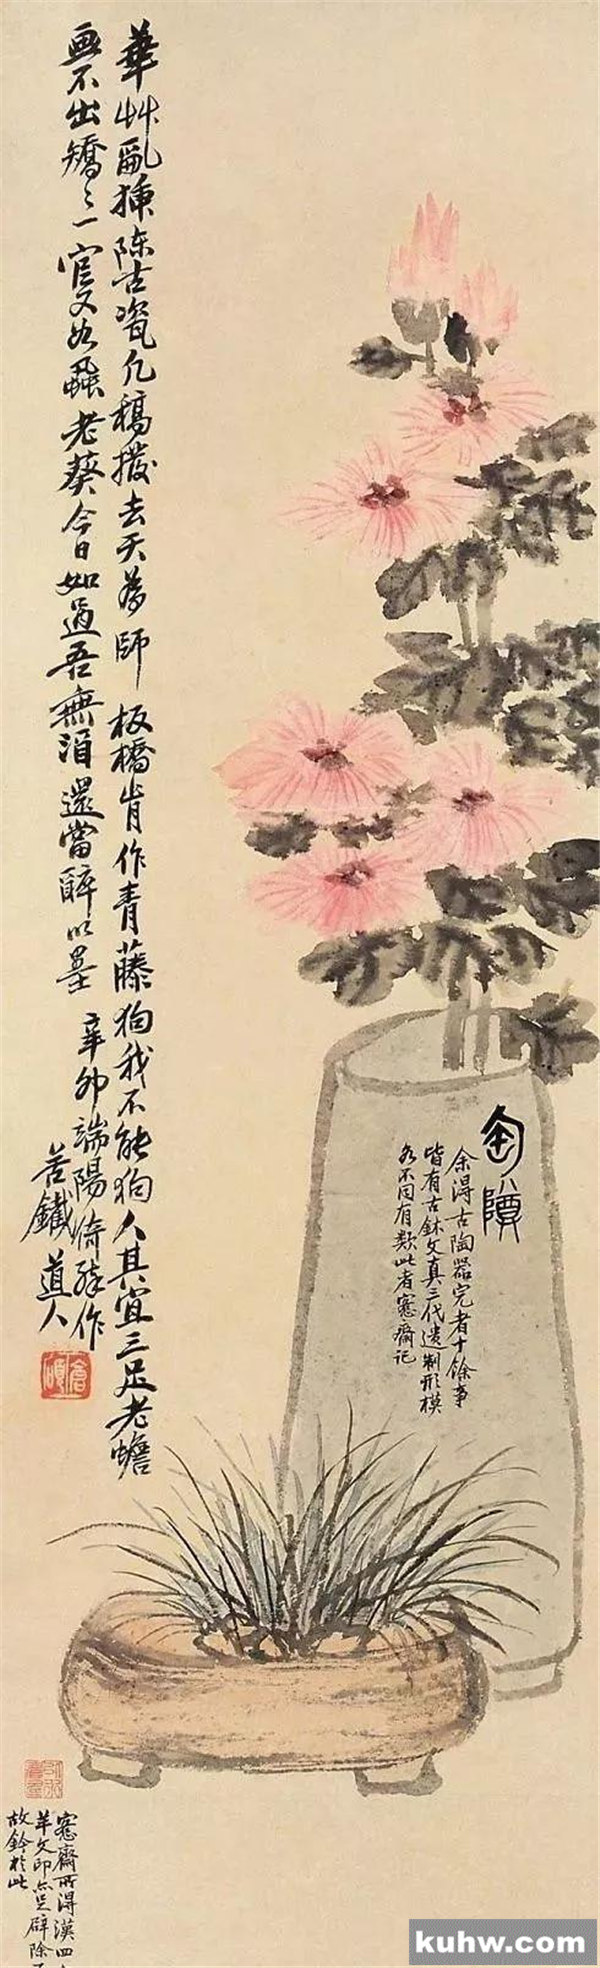 華艸亂插陈古瓷凡稿撥去天為師板橋肯作青藤狗我不能狗人其宜三足老蟾
畫不出矯矯一官又如蝨老葵今日如過吾無酒還當醉以墨
辛卯端陽倚醉作
苦鐵道人
倉碩
匋尊
余得古陶器完者十餘事
皆有古鉥文真三代遺制形模
各不同有類此者愙齋记
愙齋所得漢四
羊文印亦足辟除
故鈐於此
kuhw.com